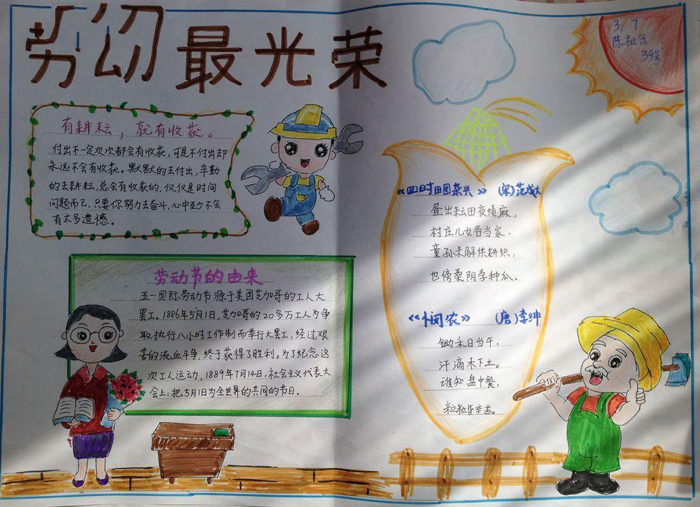 劳动最光荣
3.7
39号
有耕耘，就有收获。
付出不一定次次都会有收获，可是不付出却
永远不会有收获。默默的去付出，辛勤
的去耕耘，总会有收获的，仅仅是时间
问题而已，只要你努力去奋斗，心中至少不会
有太多遗憾。
劳动节的由来
五一国际劳动节源于美国芝加哥的工人大
罢工，1886年5月1日，芝加哥的20多万工人为争
取执行八小时工作制而举行大罢工，经过艰
苦的流血斗争，终于获得了胜利。为了纪念这
次工人运动，1889年7月14日，社会主义代表大
会上：把5月1日为全世界的共同的节日。
《四时田园杂兴》 （宋）范成大
昼出耘田夜绩麻，
村庄儿女各当家。
童孙未解供耕织，
也傍桑阴学种瓜。
《悯农》 （唐）李绅
锄禾日当午，
汗滴禾下土。
谁知盘中餐，
粒粒皆辛苦。